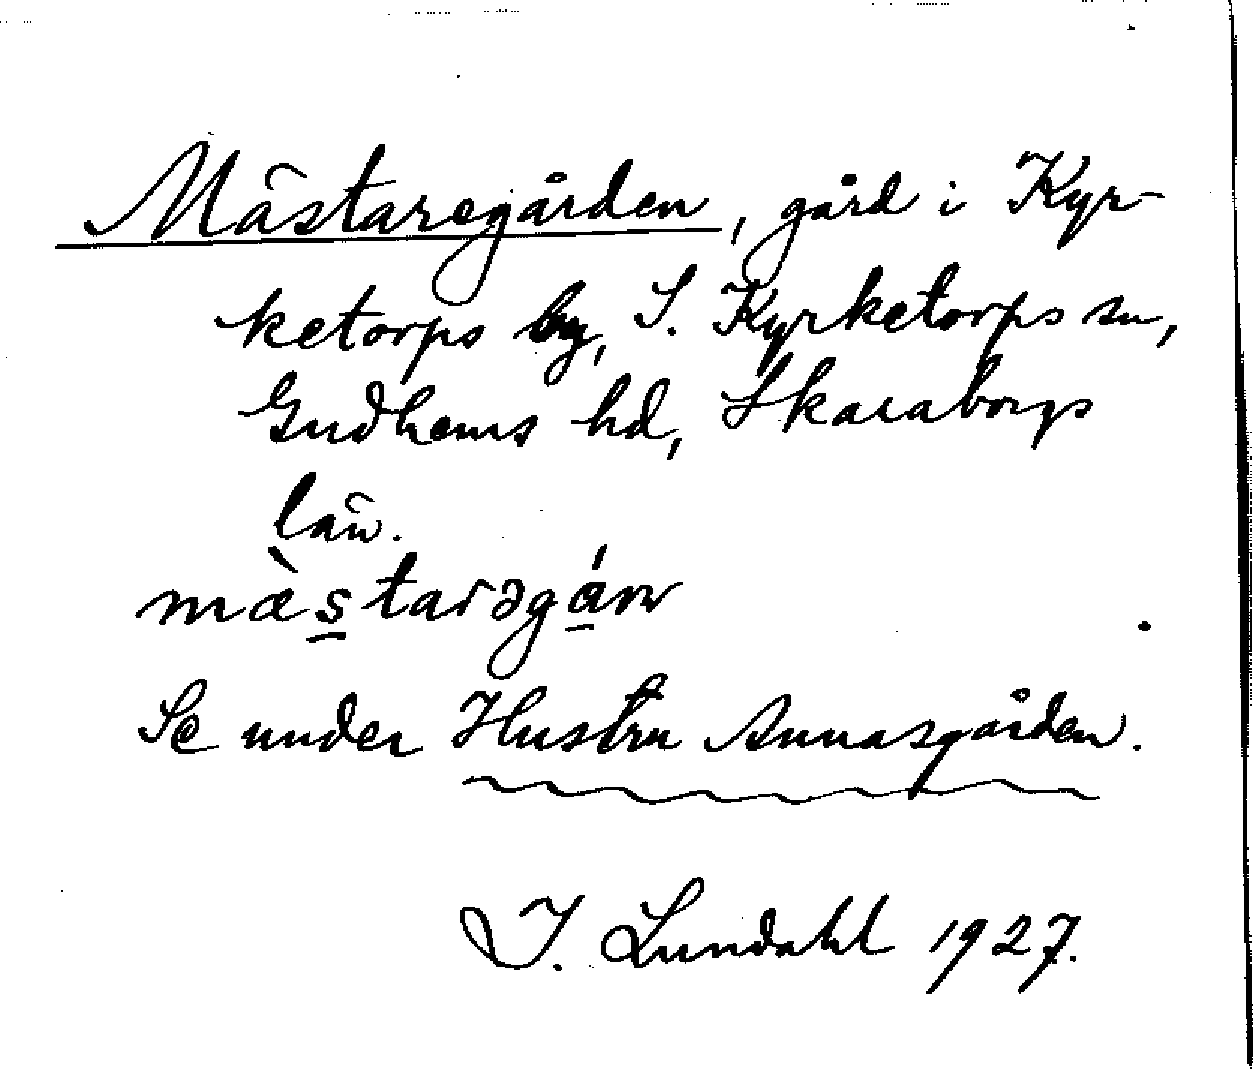 Mästaregården, gård i Kyr-
ketorps by, S. Kyrketorps sn,
Gudhems hd, Skaraborgs
län.
mæ̀starəgán
Se under Hustru Annasgården.
I. Lundahl 1927.